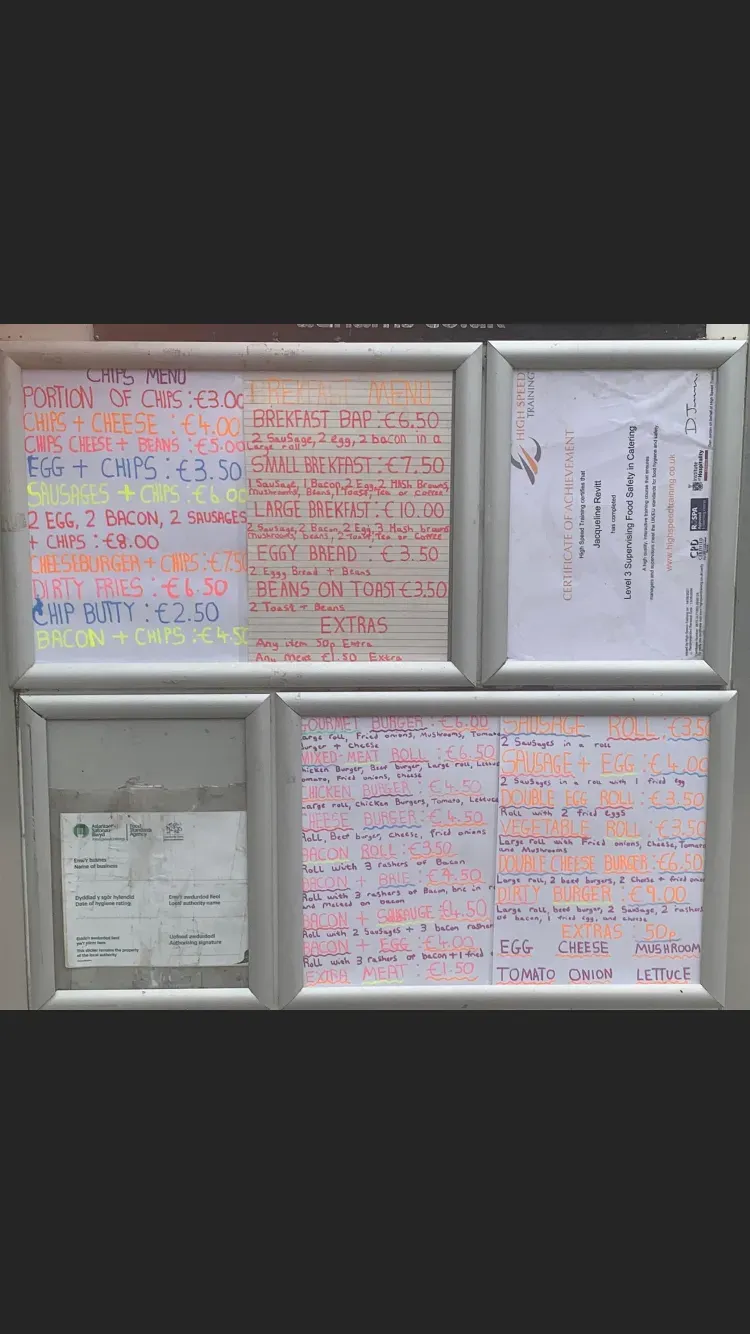 CHIPS MENU
PORTION OF CHIPS :€3.00
CHIPS + CHEESE : €4.00
CHIPS CHEESE + BEANS :€5.00
EGG + CHIPS :€3.50
SAUSAGES + CHIPS :€6.00
2 EGG, 2 BACON, 2 SAUSAGES
+ CHIPS :€8.00
CHEESEBURGER + CHIPS :€7.50
DIRTY FRIES :€6.50
CHIP BUTTY :€2.50
BACON + CHIPS :€4.50
BREKFAST MENU
BREKFAST BAP :€6.50
2 Sausage, 2 egg, 2 bacon in a
Large roll
SMALL BREKFAST :€7.50
1 Sausage, 1 Bacon, 2 Egg, 2 Hash Browns,
Mushrooms, Beans, 1 Toast, Tea or Coffee
LARGE BREKFAST :€10.00
2 Sausage, 2 Bacon, 2 Egg, 3 Hash browns
mushrooms, beans, 2 Toast, Tea or Coffee
EGGY BREAD : €3.50
2 Eggy Bread + Beans
BEANS ON TOAST €3.50
2 Toast + Beans
EXTRAS
Any item 50p Extra
Any Meat €1.50 Extra
HIGH SPEED
TRAINING
CERTIFICATE OF ACHIEVEMENT
High Speed Training certifies that
Jacqueline Revitt
has completed
Level 3 Supervising Food Safety in Catering
A high quality, interactive training course that ensures
managers and supervisors meet the UK/EU standards for food hygiene and safety.
www.highspeedtraining.co.uk
CPD
CERTIFIED
RoSPA
Institute
Hospitality
Asiantaeth
Safonau
Bwyd
Food
Standards
Agency
Enw'r busnes
Name of business
Dyddiad y sgôr hylendid
Date of hygiene rating
Enw'r awdurdod lleol
Local authority name
Llofnod awdurdodi
Authorising signature
This sticker remains the property
of the local authority
GOURMET BURGER :€6.00
Large roll, Fried onions, Mushrooms, Tomato
Burger + Cheese
MIXED-MEAT ROLL :€6.50
Chicken Burger, Beef burger, Large roll, Lettuce
Tomato, Fried onions, cheese
CHICKEN BURGER :€4.50
Large roll, Chicken Burgers, Tomato, Lettuce
CHEESE BURGER :€4.50
Roll, Beef burger, Cheese, fried onions
BACON ROLL :€3.50
Roll with 3 rashers of Bacon
BACON + BRIE :€4.50
Roll with 3 rashers of Bacon, brie in r
and Melted on bacon
BACON + SAUSAUGE :€4.50
Roll with 2 Sausages + 3 bacon rasher
BACON + EGG :€4.00
Roll with 3 rashers of bacon + 1 fried
EXTRA MEAT :€1.50
SAUSAGE ROLL :€3.50
2 Sausages in a roll
SAUSAGE + EGG :€4.00
2 Sausages in a roll with 1 fried egg
DOUBLE EGG ROLL :€3.50
Roll with 2 fried Eggs
VEGETABLE ROLL :€3.50
Large roll with Fried onions, Cheese, Tomato
and Mushrooms
DOUBLE CHEESE BURGER :€6.50
Large roll, 2 beef burgers, 2 Cheese + fried onions
DIRTY BURGER :€9.00
Large roll, beef burger, 2 Sausage, 2 rashers
of bacon, 1 fried egg, and cheese
EXTRAS 50p
EGG CHEESE MUSHROOM
TOMATO ONION LETTUCE